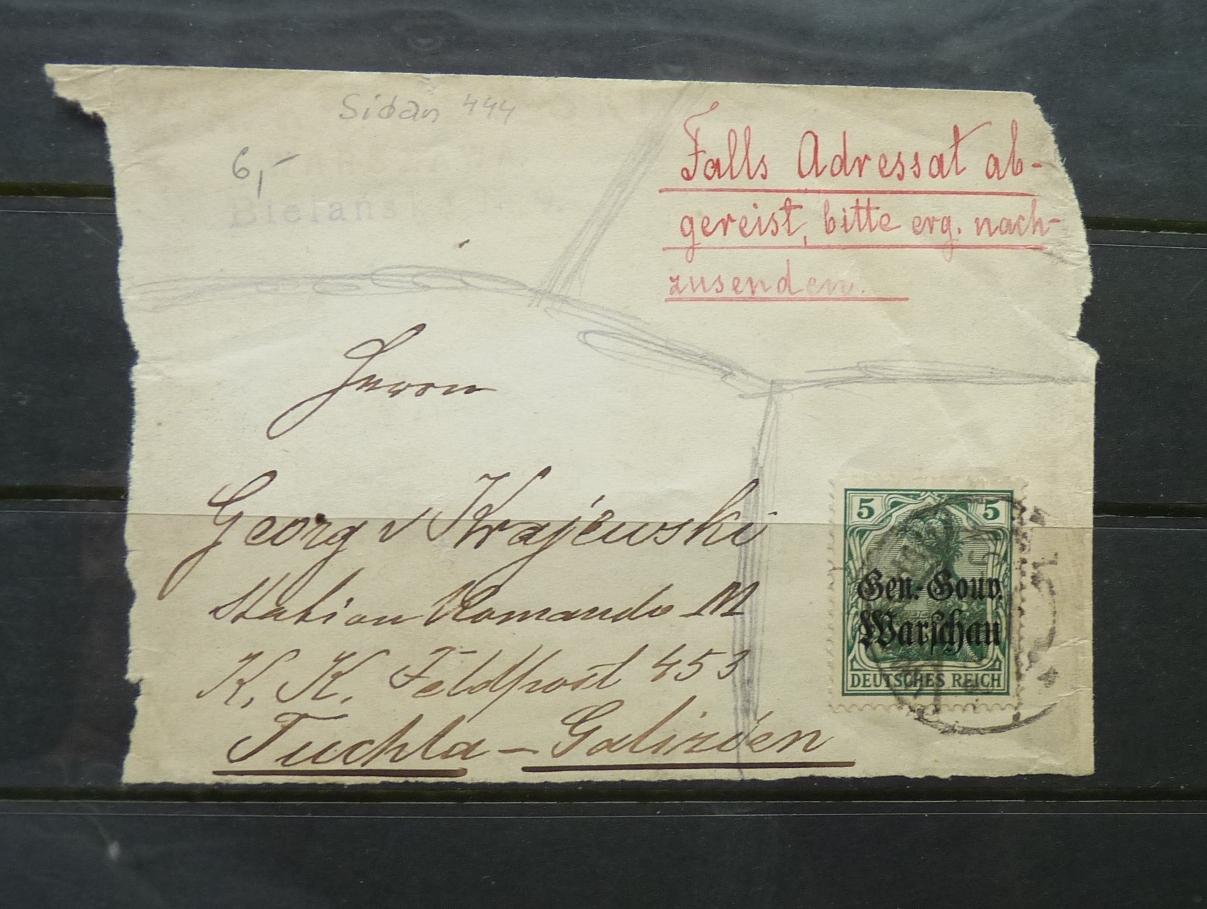 Sidan 444
6,-
Bielańska
Falls Adressat ab-
gereist, bitte erg. nach-
zusenden.
Herrn
Georg v Krajewski
Station Komando M
K. K. Feldpost 453
Tuchla - Galizien
5 5
Gen.-Gouv.
Warschau
DEUTSCHES REICH